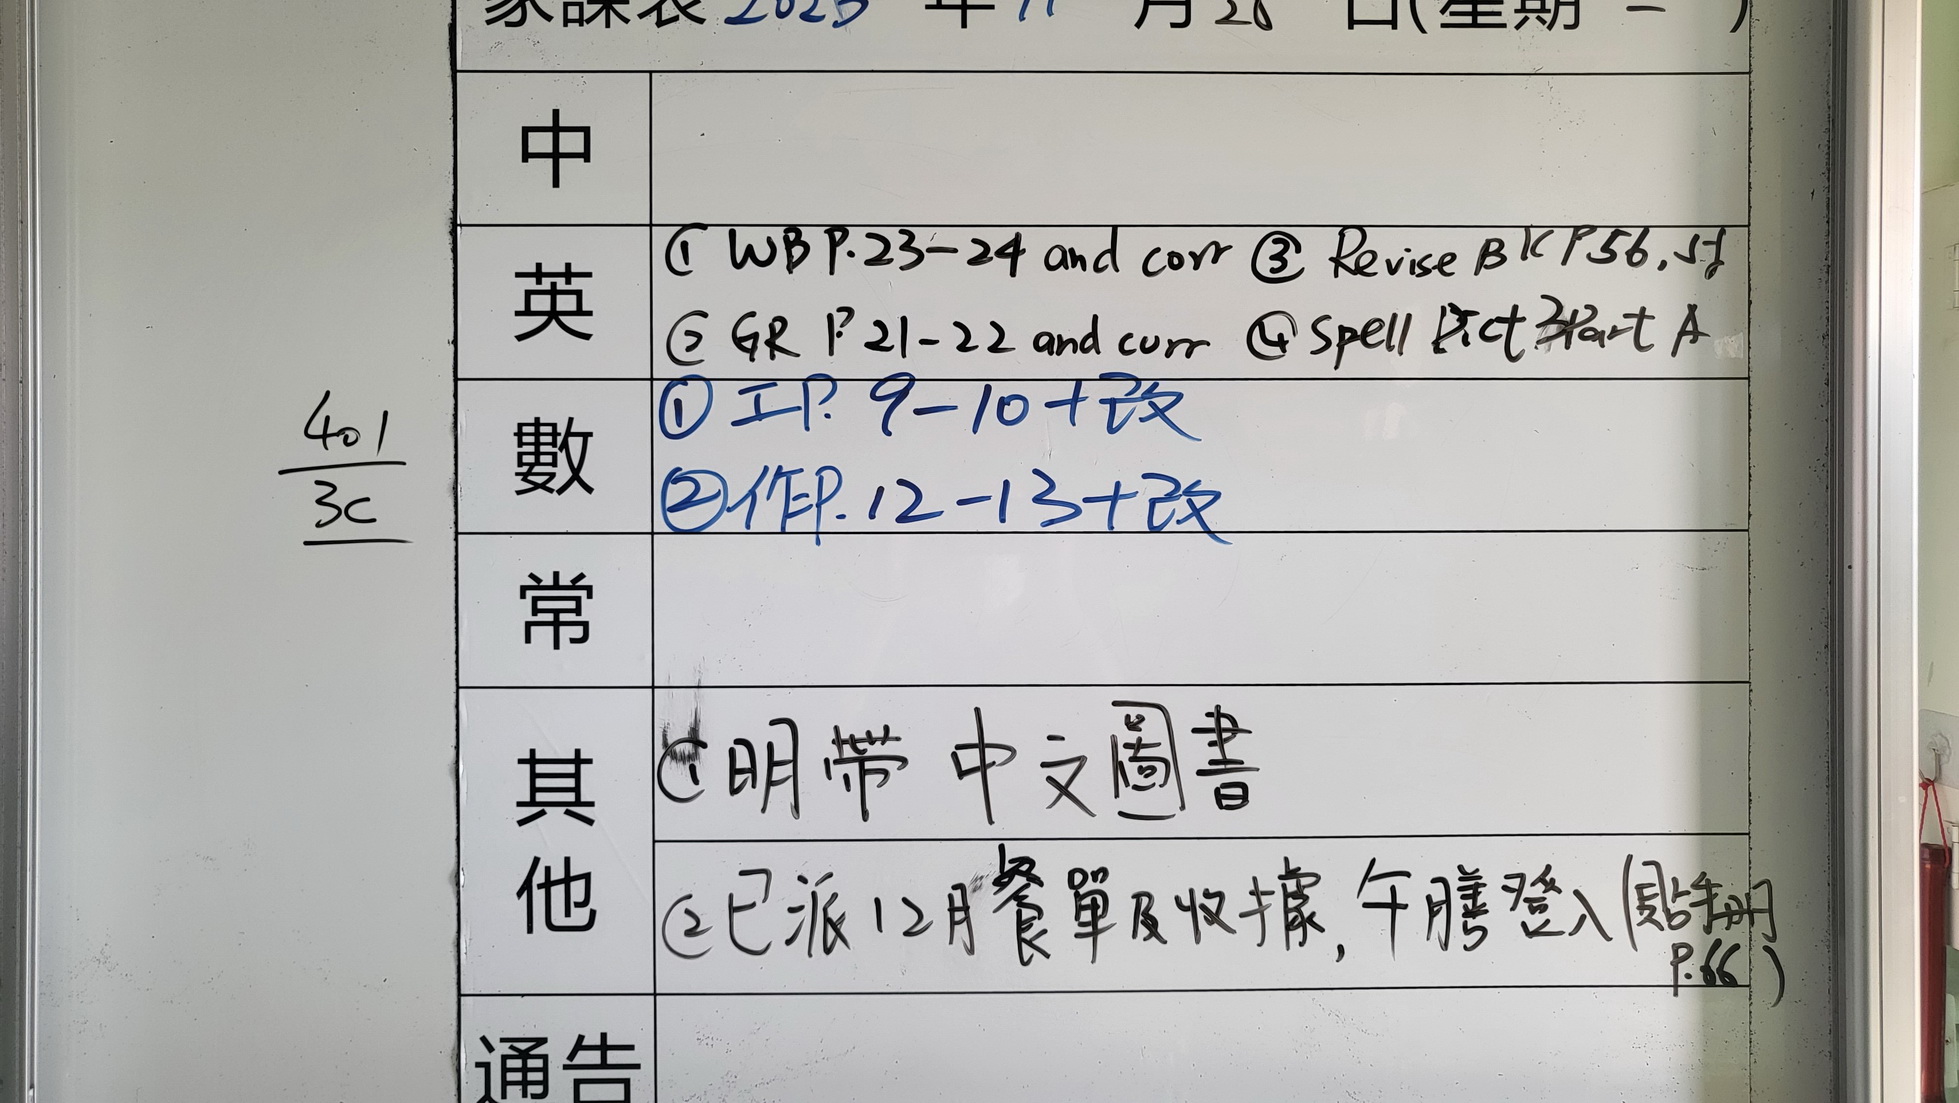 家課表 2025 年 11 月 28 日(星期 一 )
中
英
① WB P.23-24 and corr ③ Revise BK P56, 57
② GR P.21-22 and corr ④ Spell Dict Part A
401
3C
數
① 工P. 9-10+改
②作P. 12-13+改
常
其他
①明帶 中文圖書
②已派12月餐單及收據, 午膳登入(貼手冊 P.66)
通告